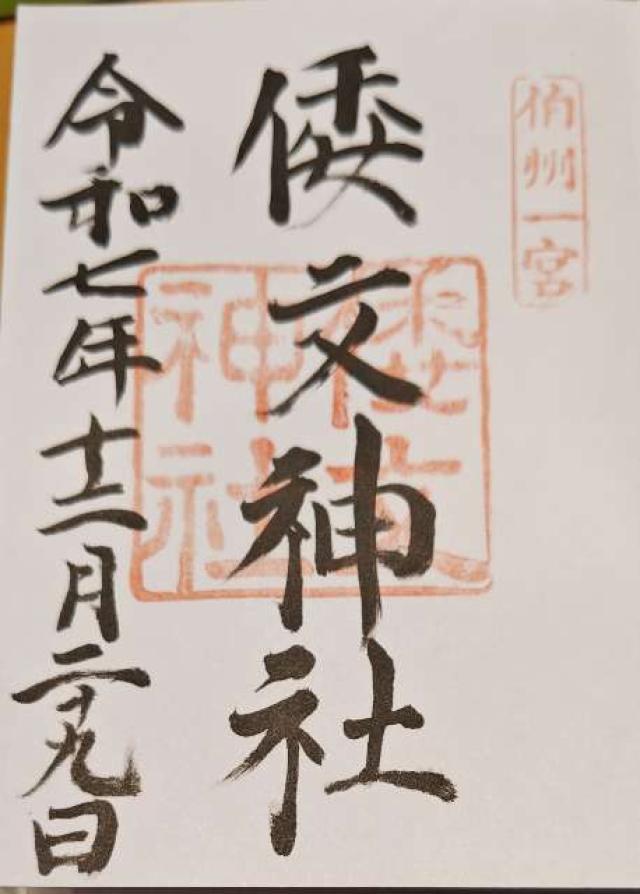 伯州一宮
倭文神社
倭文神社
令和七年十二月二十九日